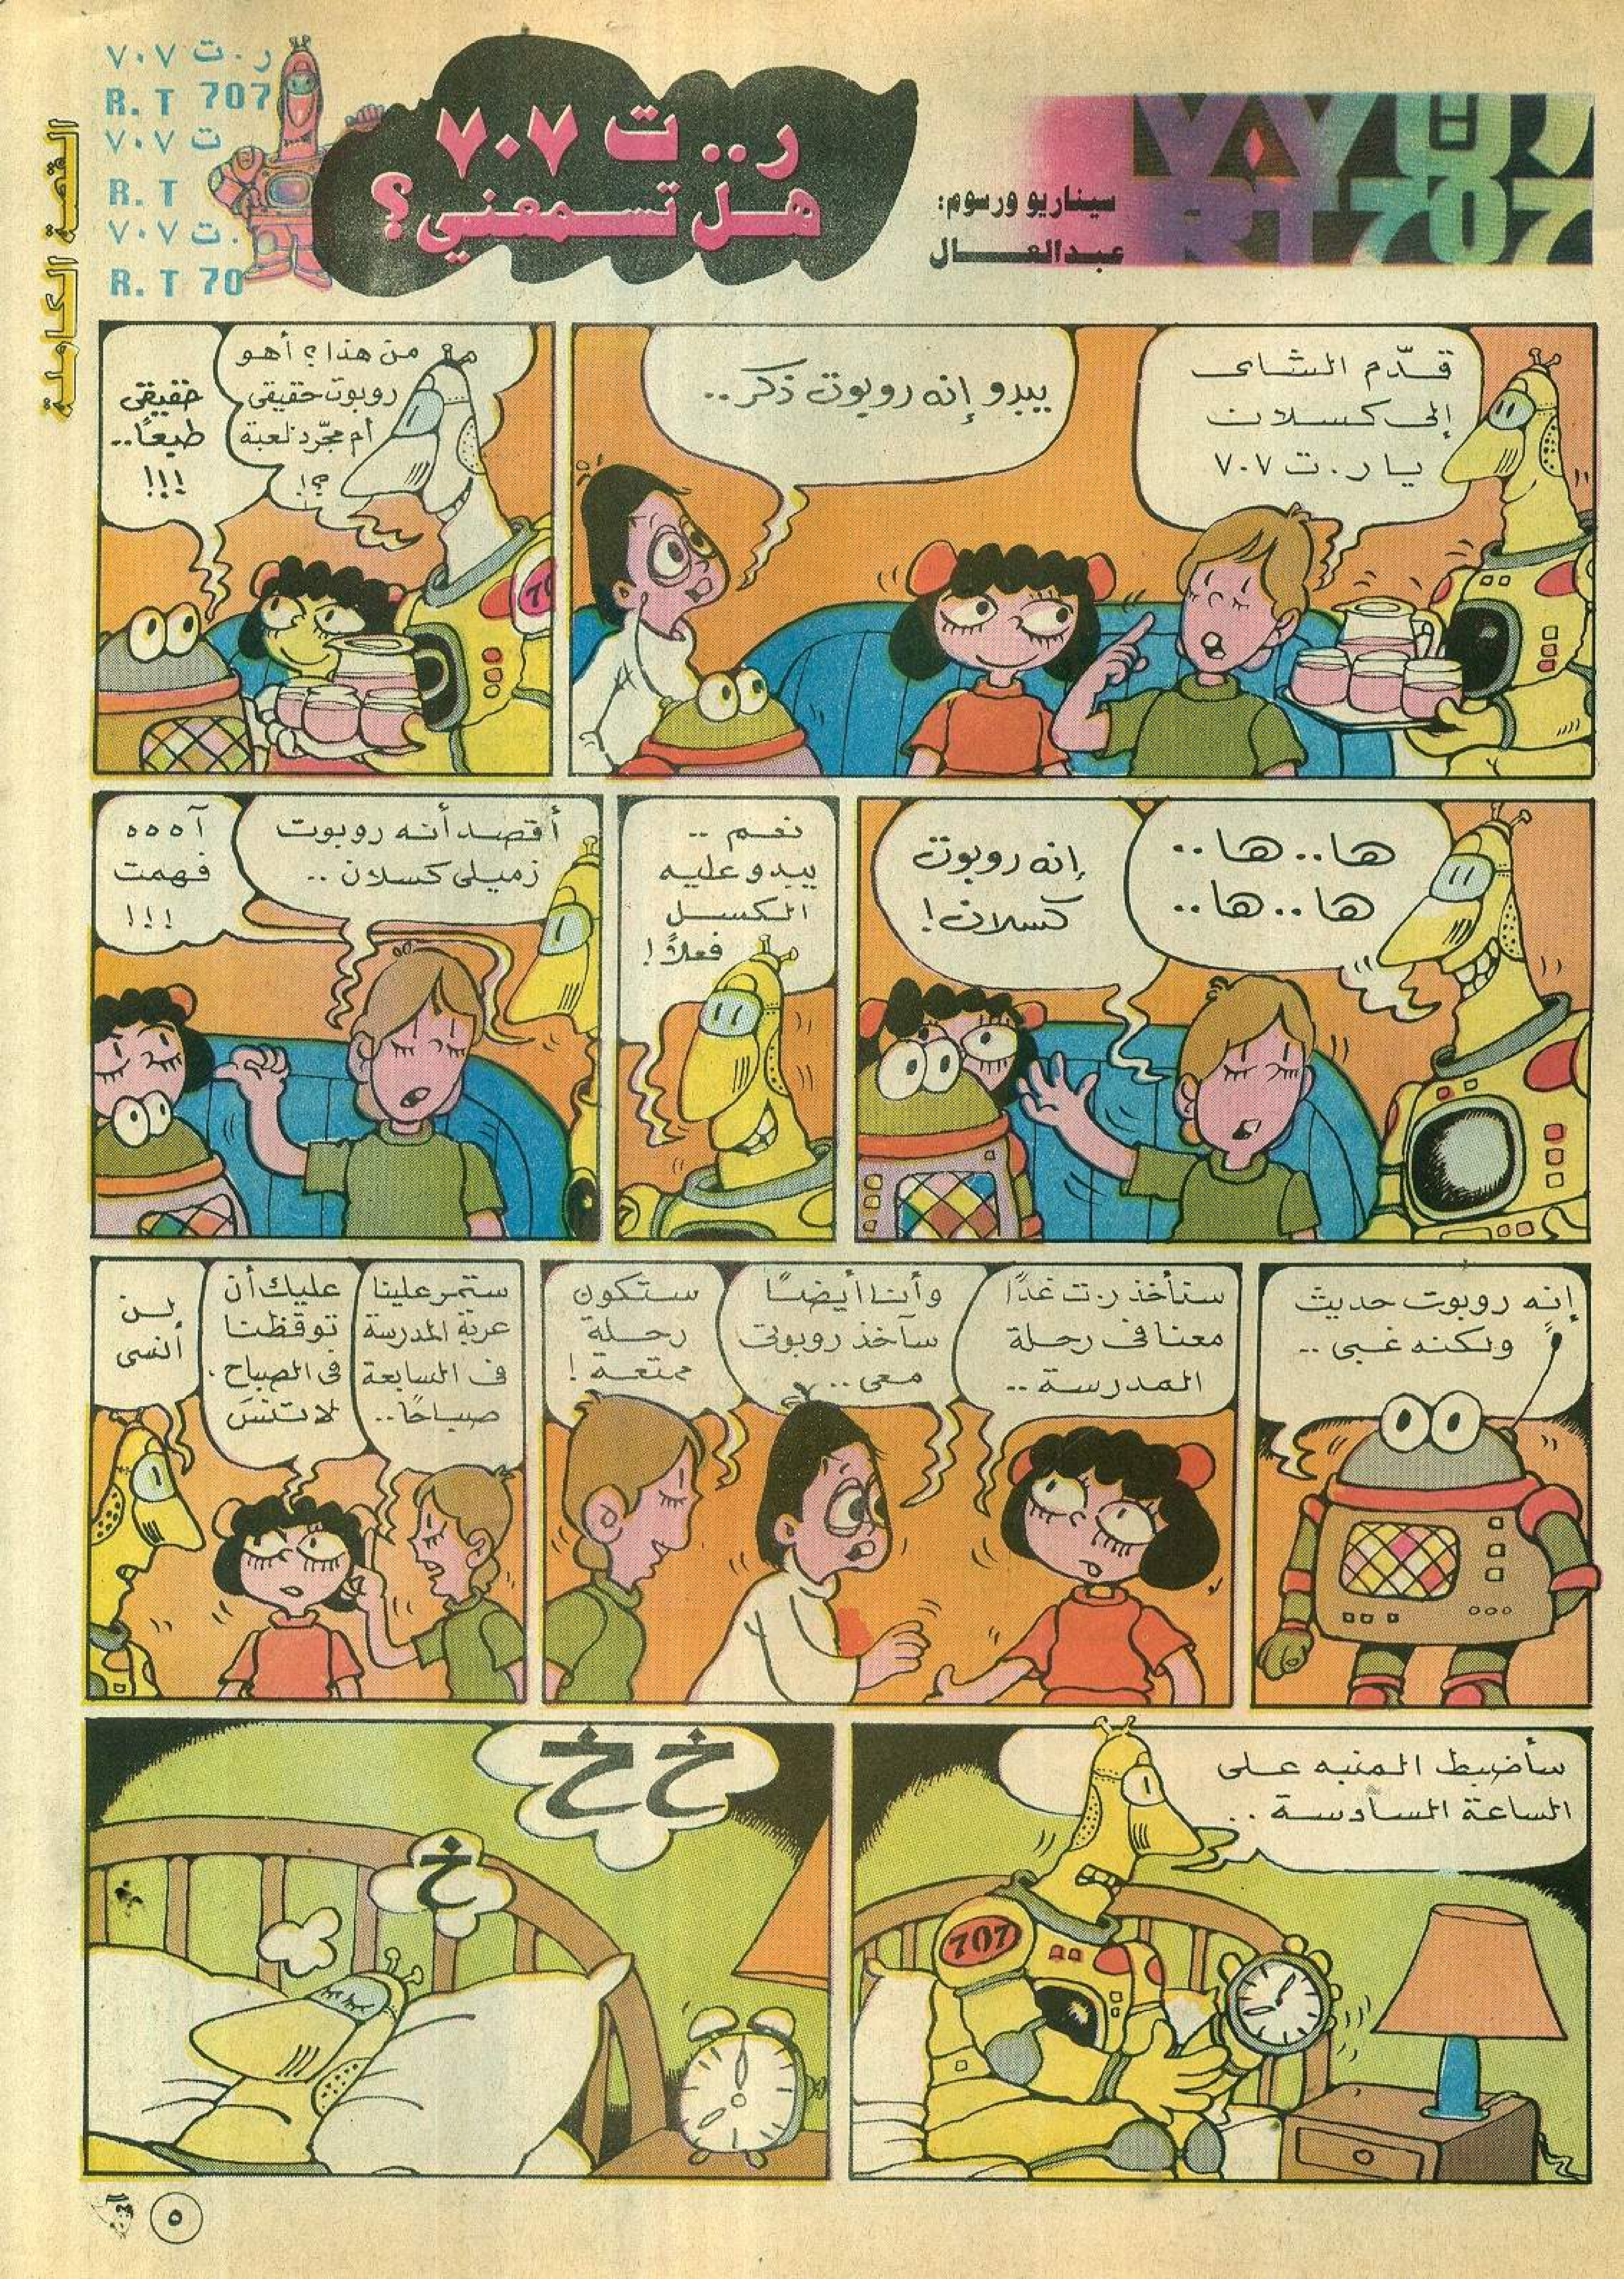 ر.ت ٧٠٧
R.T 707
ت ٧٠٧
R.T
.ت ٧٠٧
R.T 70
القصة الكاملة
ر..ت ٧٠٧
هل تسمعني؟
سيناريو ورسوم:
عبدالعال
RT707
قدّم الشاى
إلى كسلان
يا ر.ت ٧٠٧
يبدو إنه روبوت ذكر..
من هذا؟ أهو
روبوت حقيقي
أم مجّرد لعبة
؟!
حقيقي
طبعًا..
!!!
707
ها..ها..
ها..ها..
إنه روبوت
كسلان!
نعم ..
يبدو عليه
الكسل
فعلاً!
أقصد أنه روبوت
زميلى كسلان ..
آ ه ه ه
فهمت
!!!
إنه روبوت حديث
ولكنه غبى ..
سنأخذ ر.ت غدًا
معنا فى رحلة
المدرسة ..
وأنا أيضًا
سآخذ روبوتى
معى ..
ستكون
رحلة
ممتعة!
ستمر علينا
عربة المدرسة
فى السابعة
صباحًا..
عليك أن
توقظنا
فى الصباح .
لا تنسَ
لن
أنسى
سأضبط المنبه على
الساعة السادسة ..
707
خ خ
خ
٥